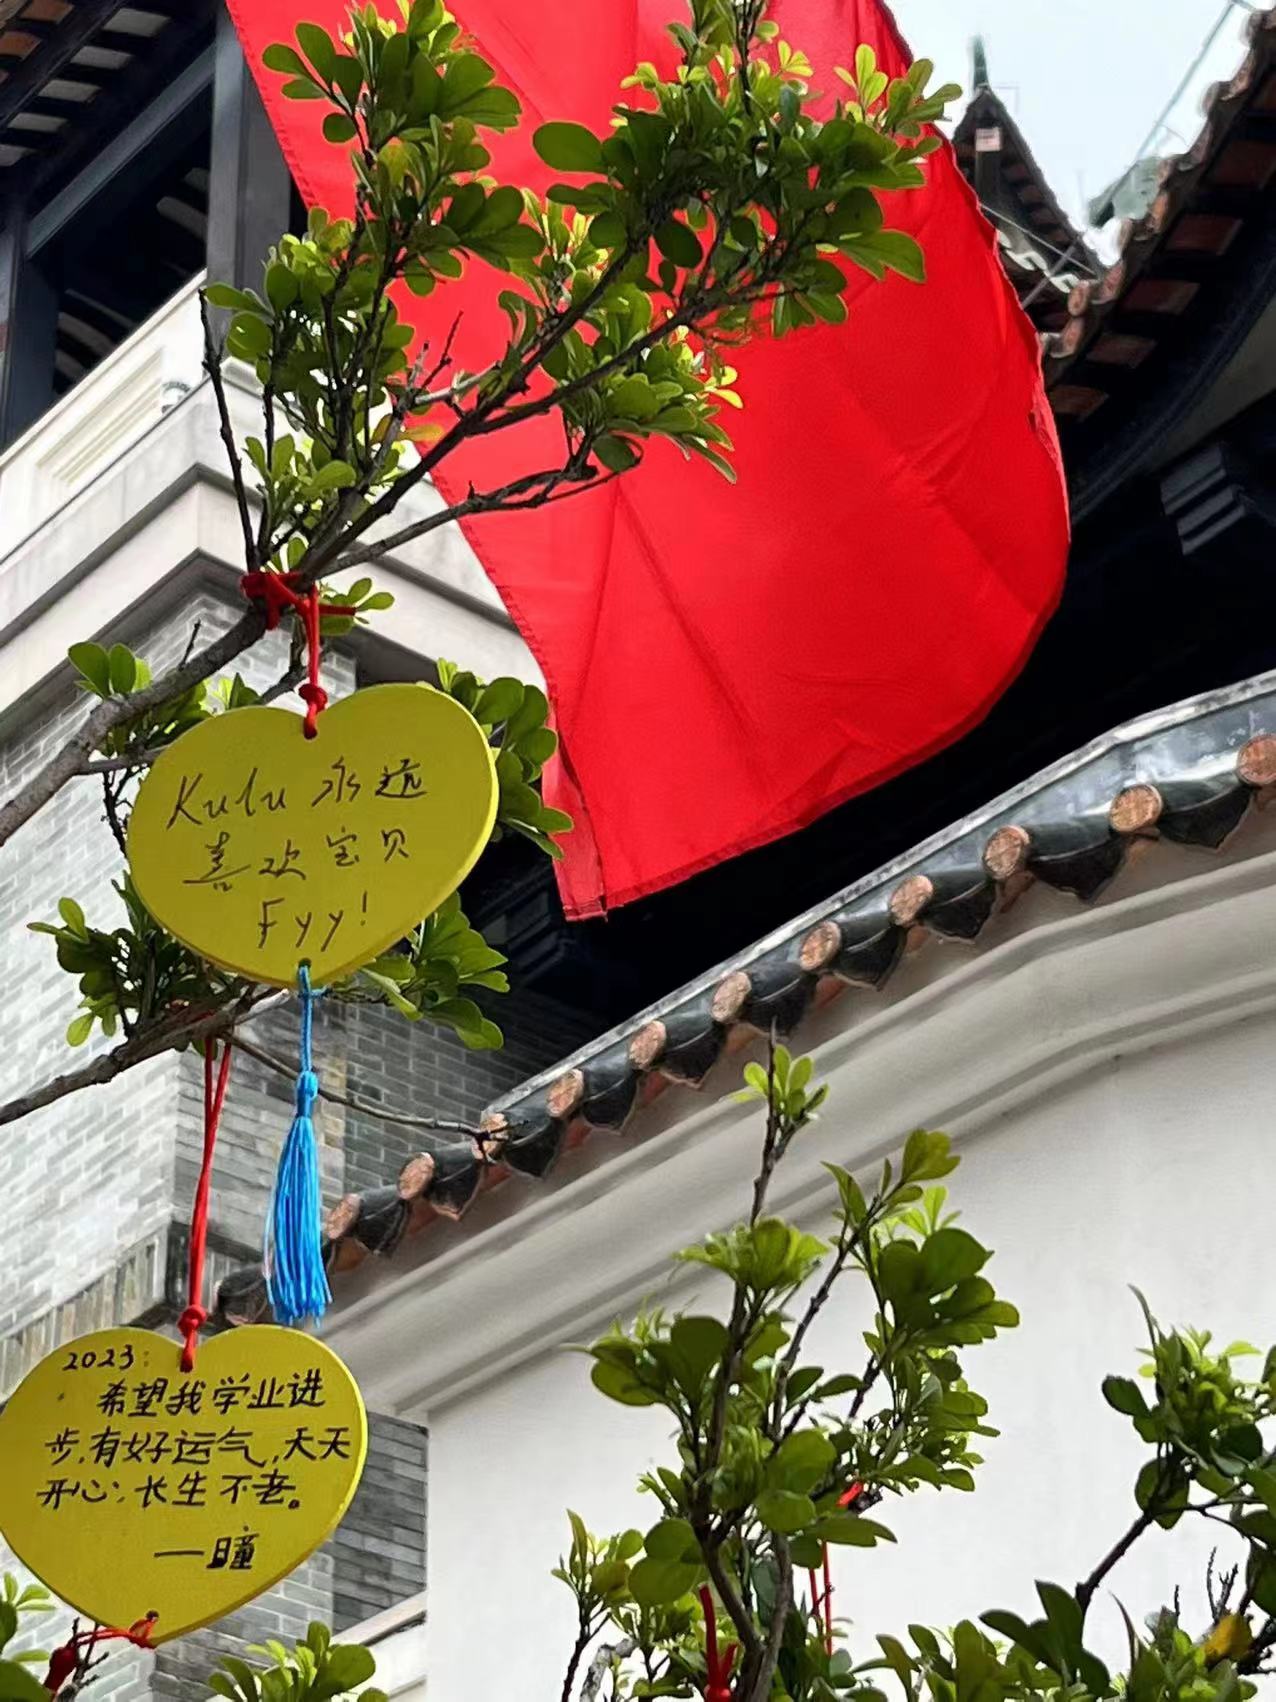 Kulu 永远
喜欢宝贝
Fyy!
2023:
希望我学业进
步,有好运气,天天
开心,长生不老。
—瞳